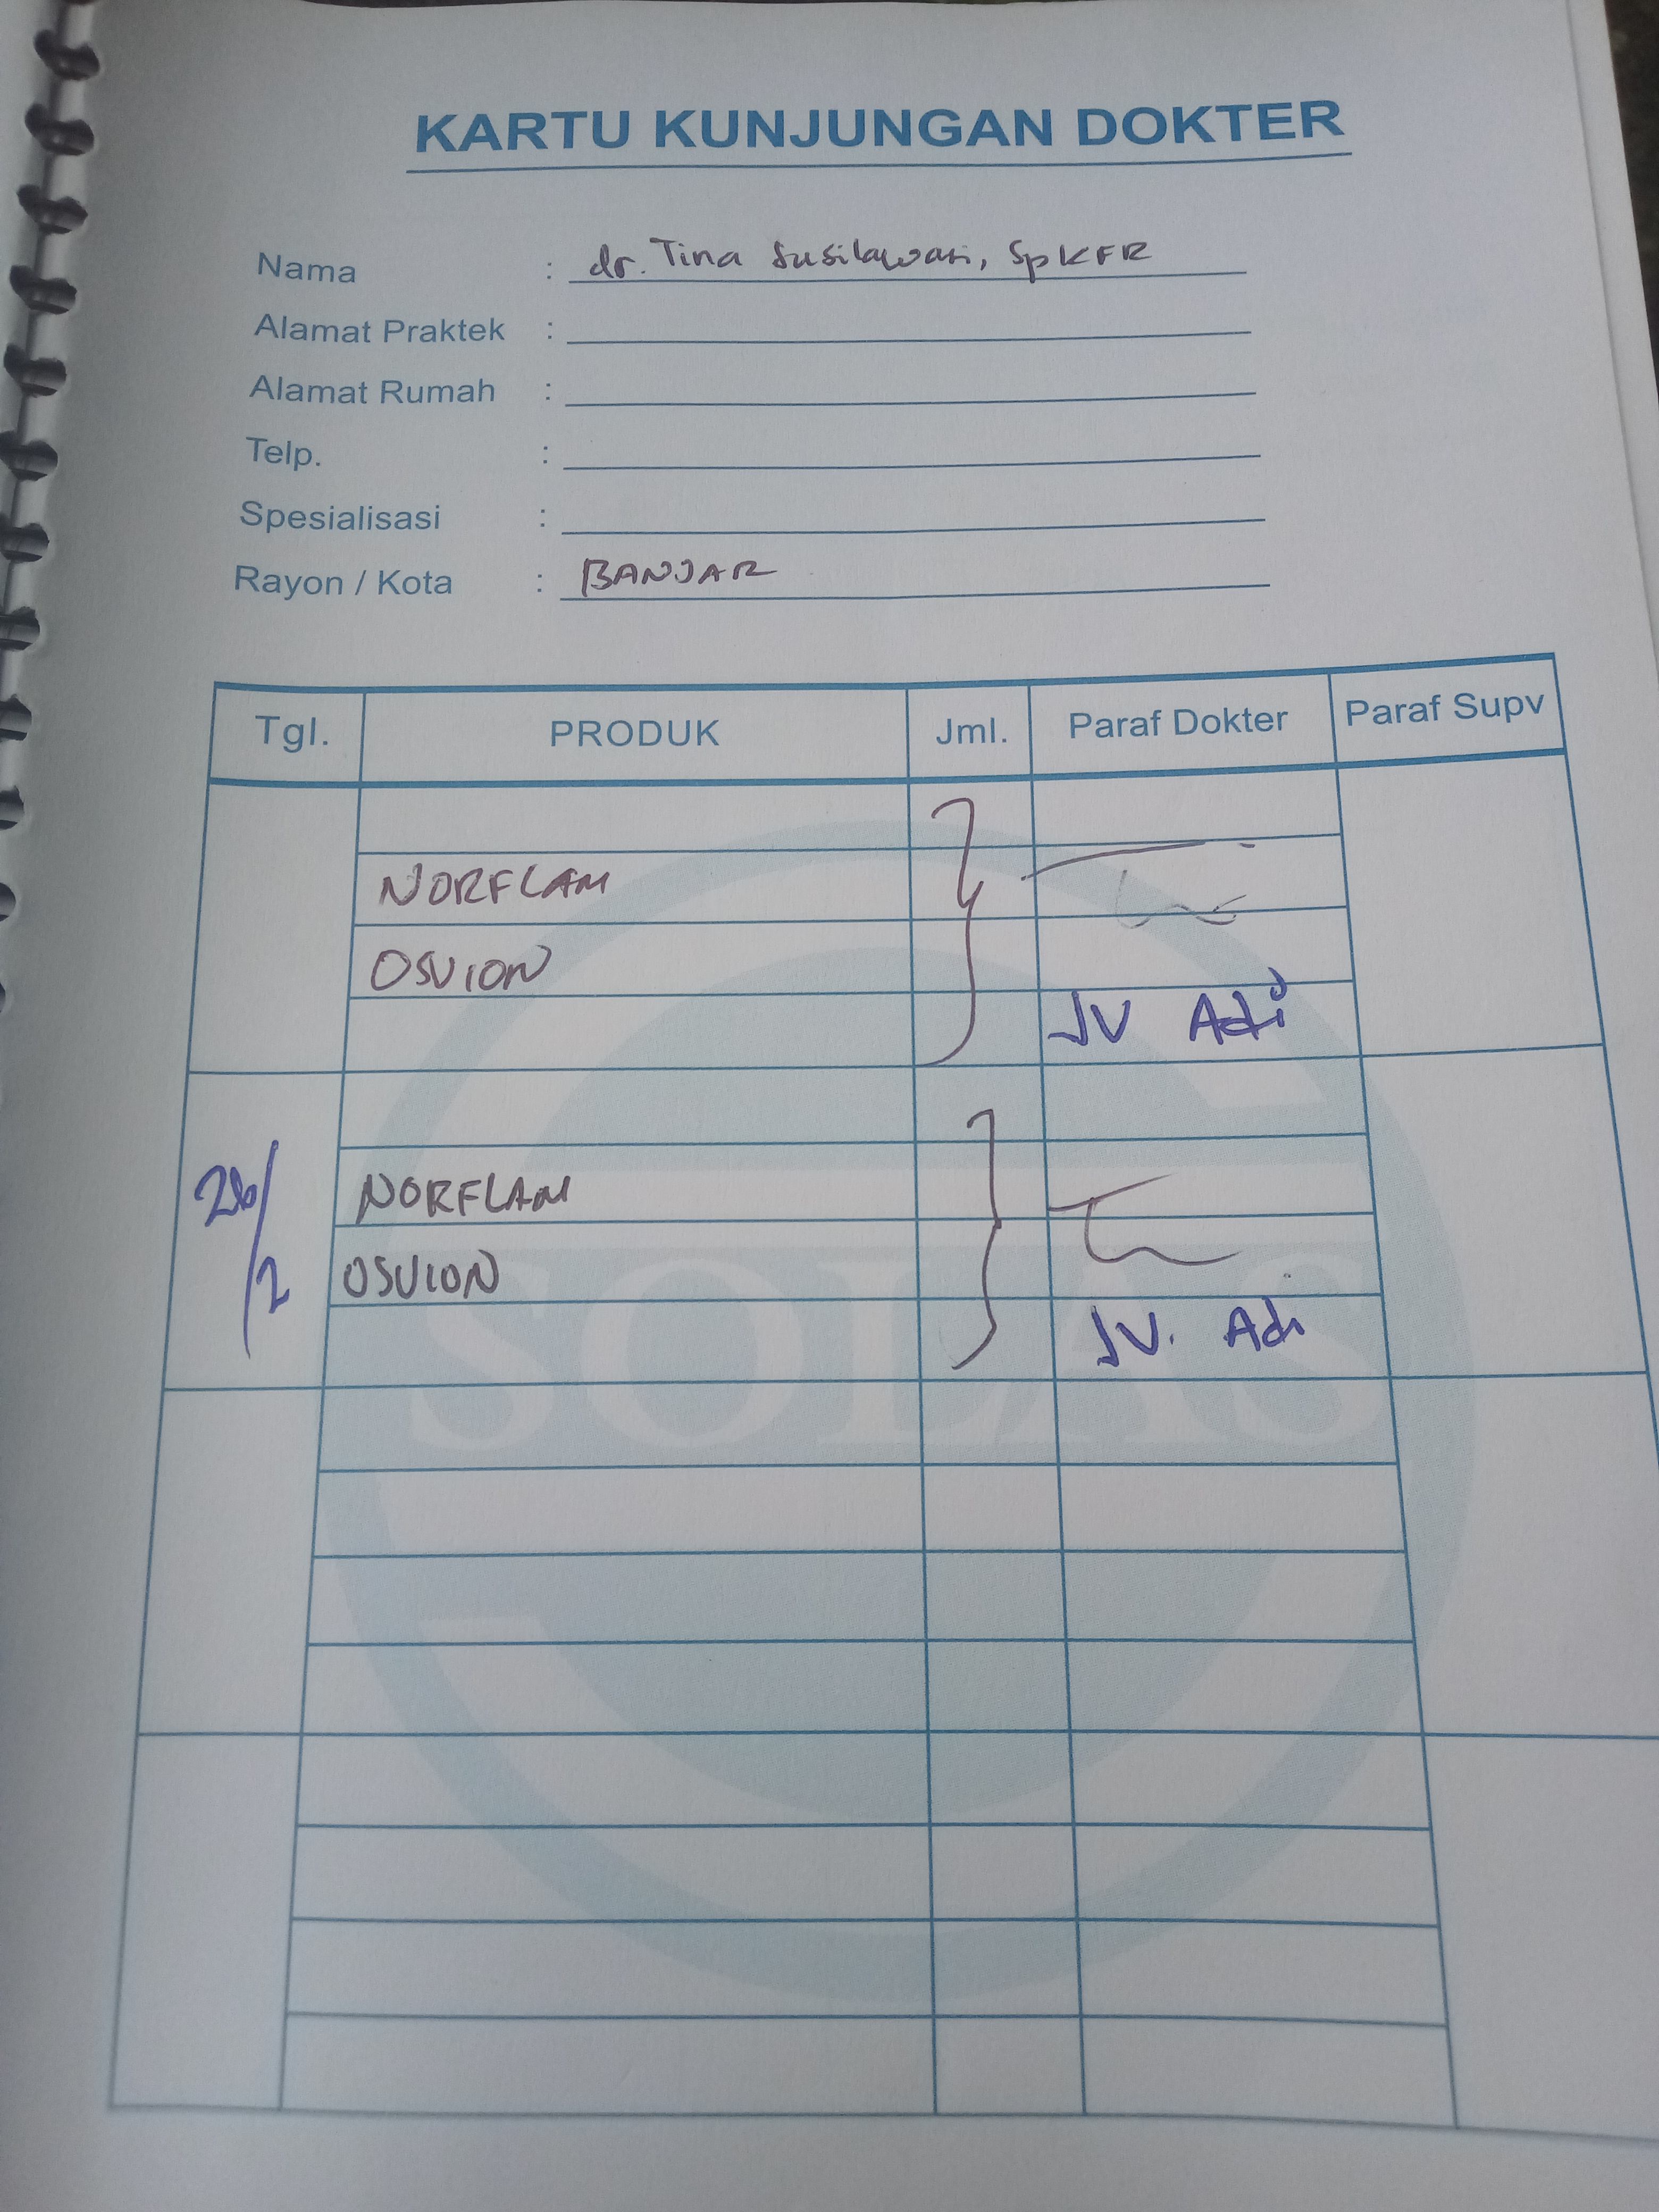 KARTU KUNJUNGAN DOKTER
Nama : dr. Tina Susilawati, SpKFR
Alamat Praktek :
Alamat Rumah :
Telp. :
Spesialisasi :
Rayon / Kota : BANJAR
Tgl. PRODUK Jml. Paraf Dokter Paraf Supv
NORFLAM
OSVION
JV Adi
26/2
NORFLAM
OSVION
JV. Adi
SOLAS